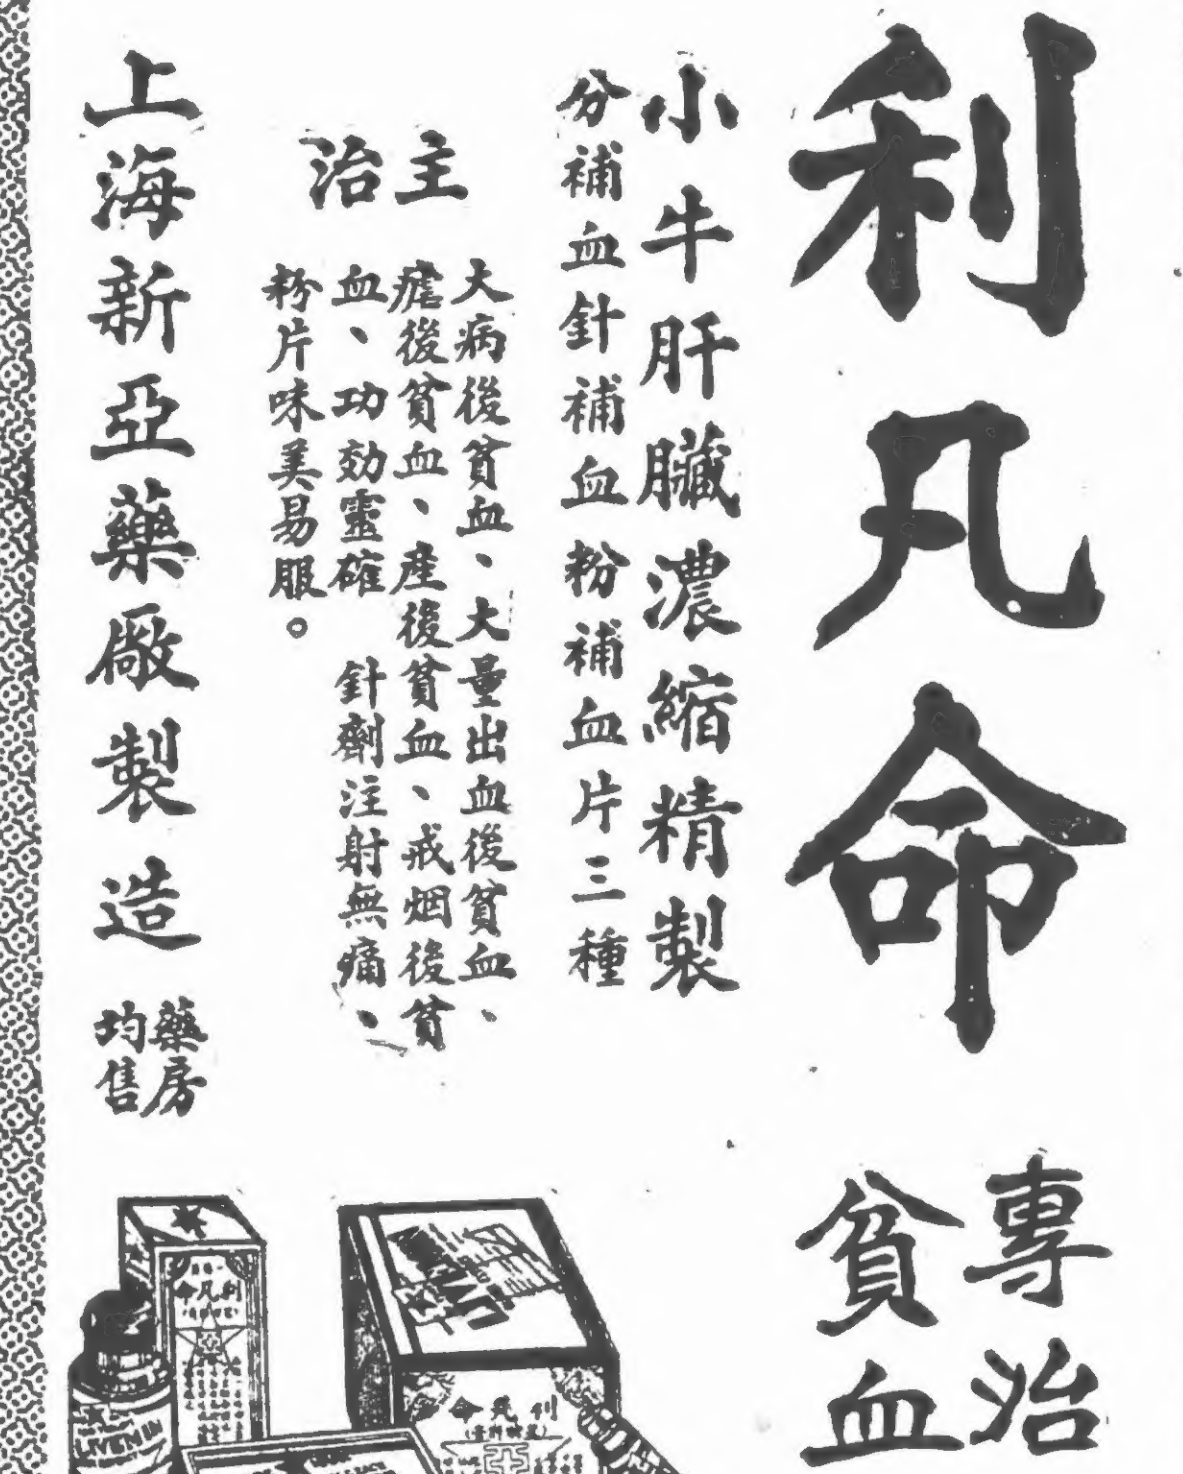 利凡命
專治
貧血
小牛肝臟濃縮精製
分補血針補血粉補血片三種
主治
大病後貧血、大量出血後貧血、
瘧後貧血、產後貧血、戒烟後貧
血、功効靈確 針劑注射無痛、
粉片味美易服。
上海新亞藥廠製造
藥房
均售
利凡命
利凡命
LIVEMIN